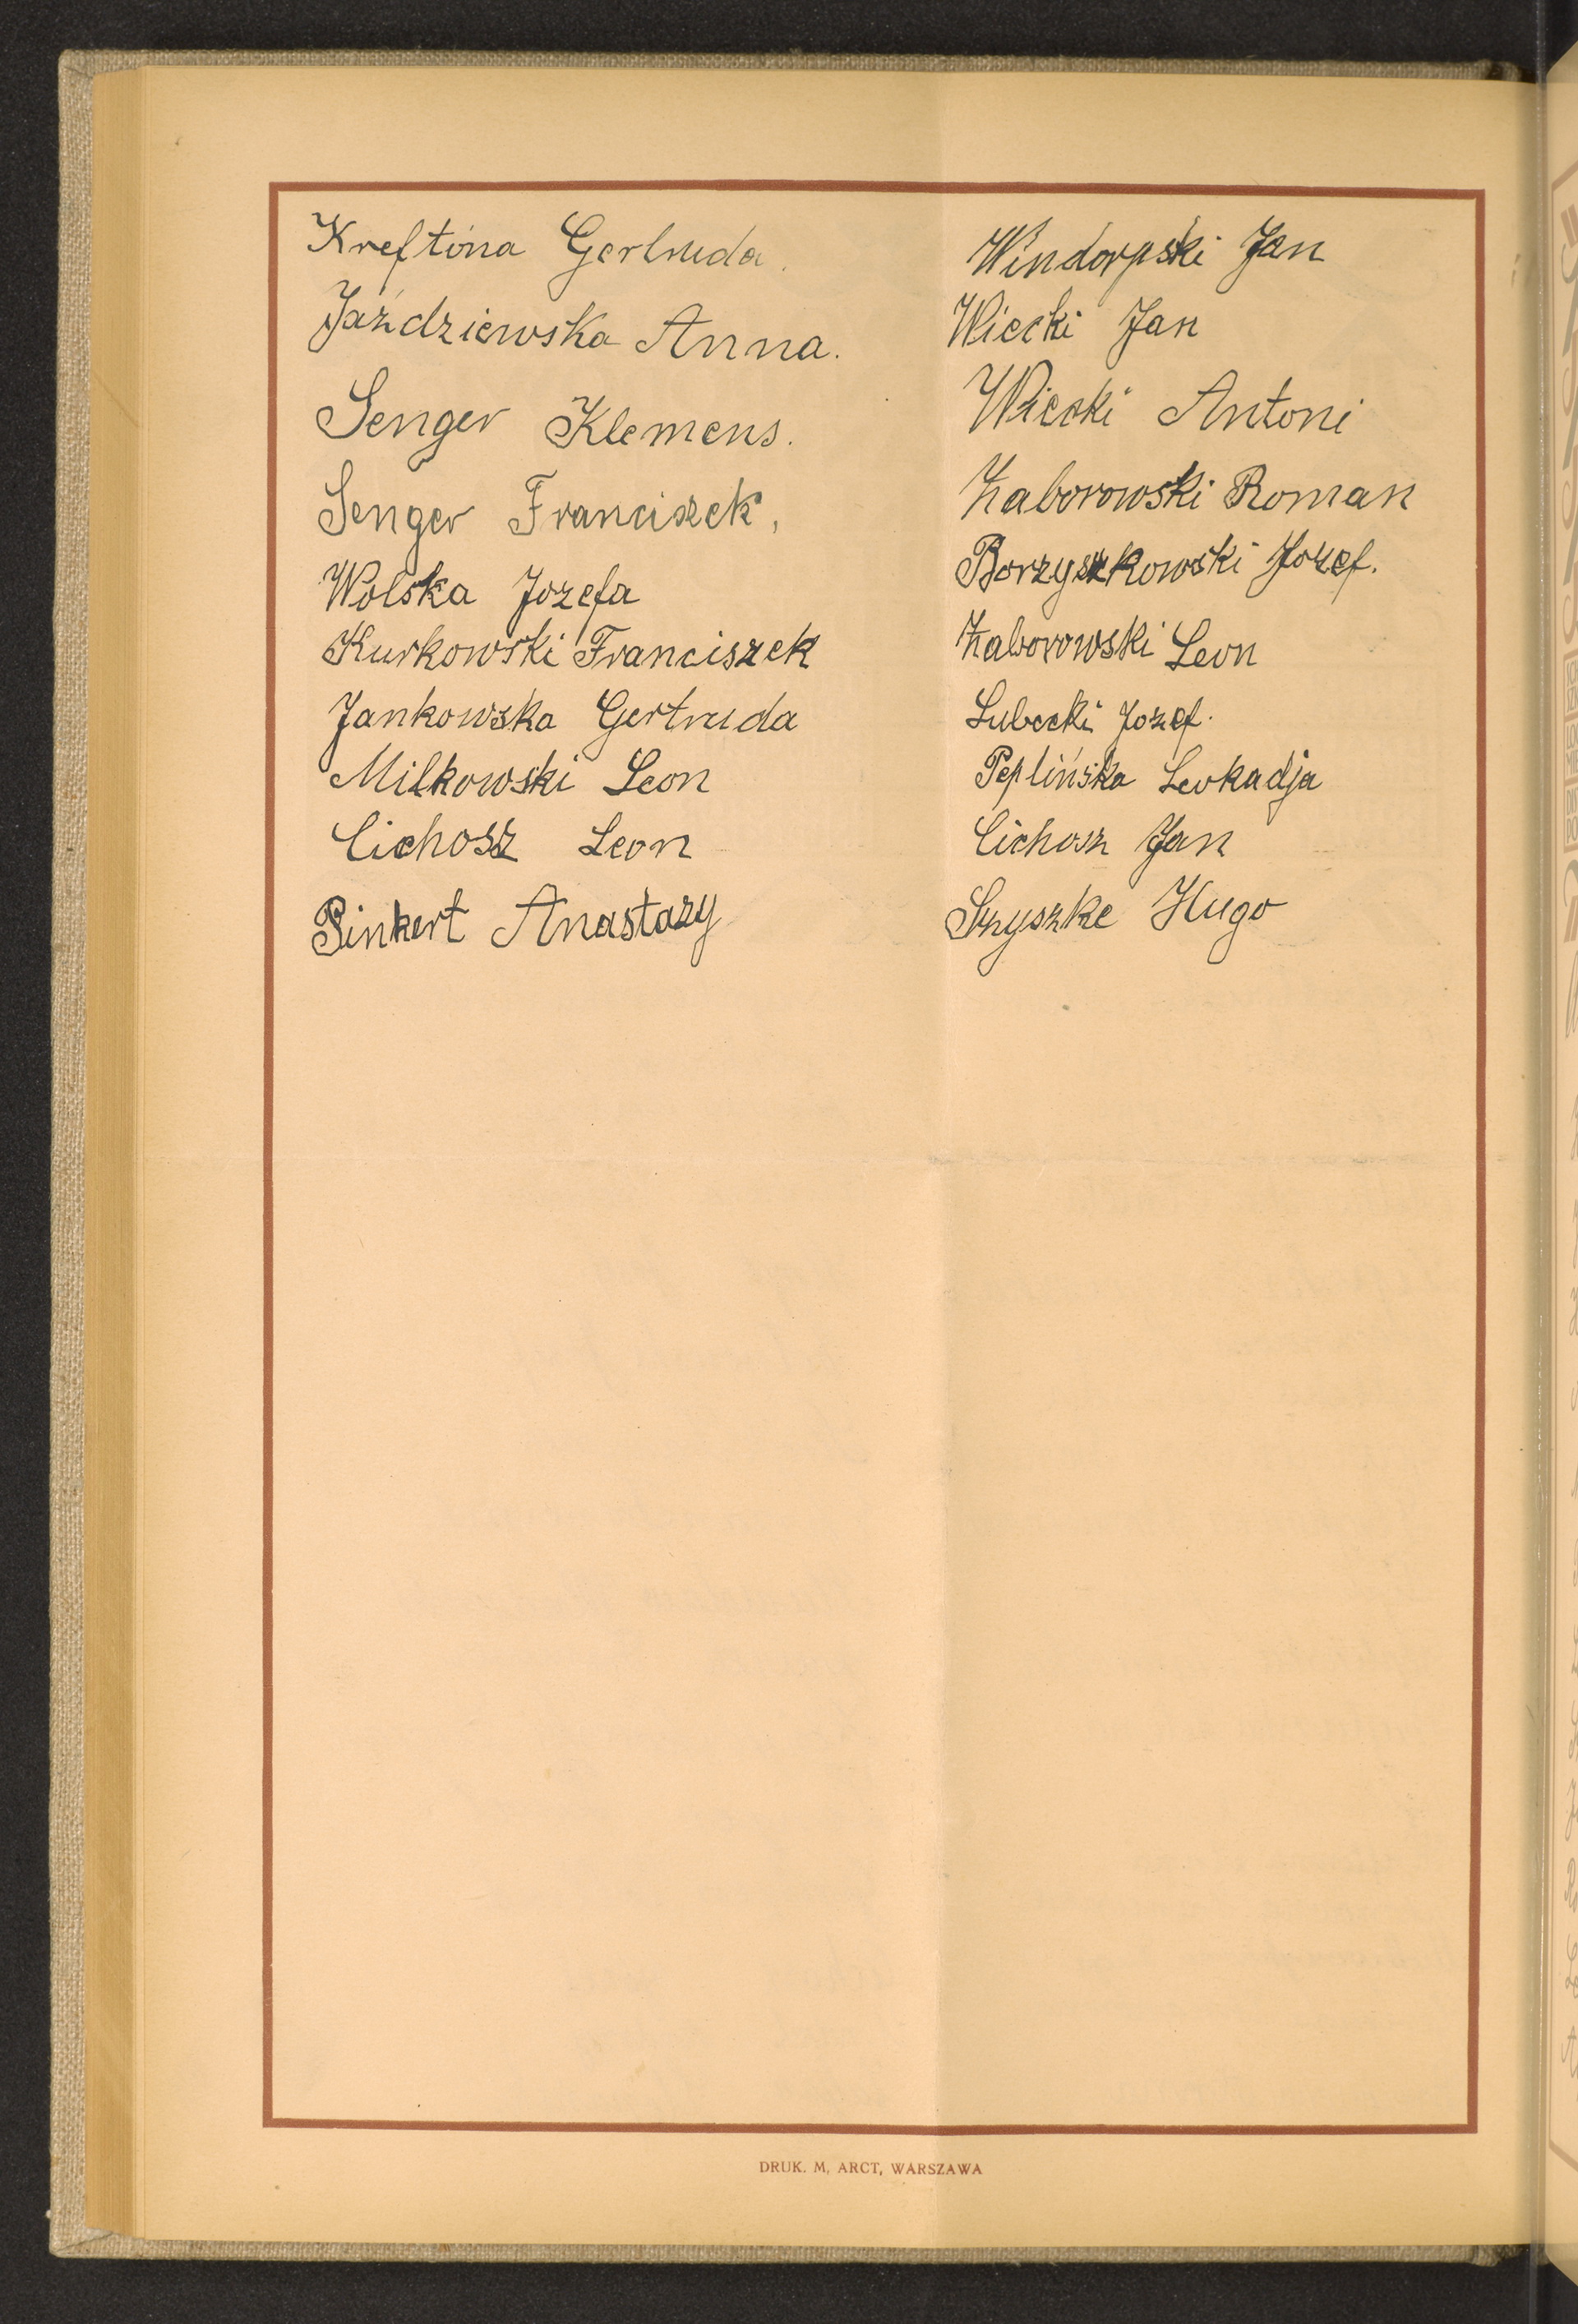 Kreftóna Gertruda.
Jaździewska Anna.
Senger Klemens.
Senger Franciszek,
Wolska Jozefa
Kurkowski Franciszek
Jankowska Gertruda
Milkowski Leon
Cichosz Leon
Binkert Anastazy
Windorpski Jan
Wiecki Jan
Wiecki Antoni
Zaborowski Roman
Borzyszkowski Jozef.
Zaborowski Leon
Lubecki Jozef.
Peplińska Leokadja
Cichosz Jan
Szyszke Hugo
DRUK. M, ARCT, WARSZAWA